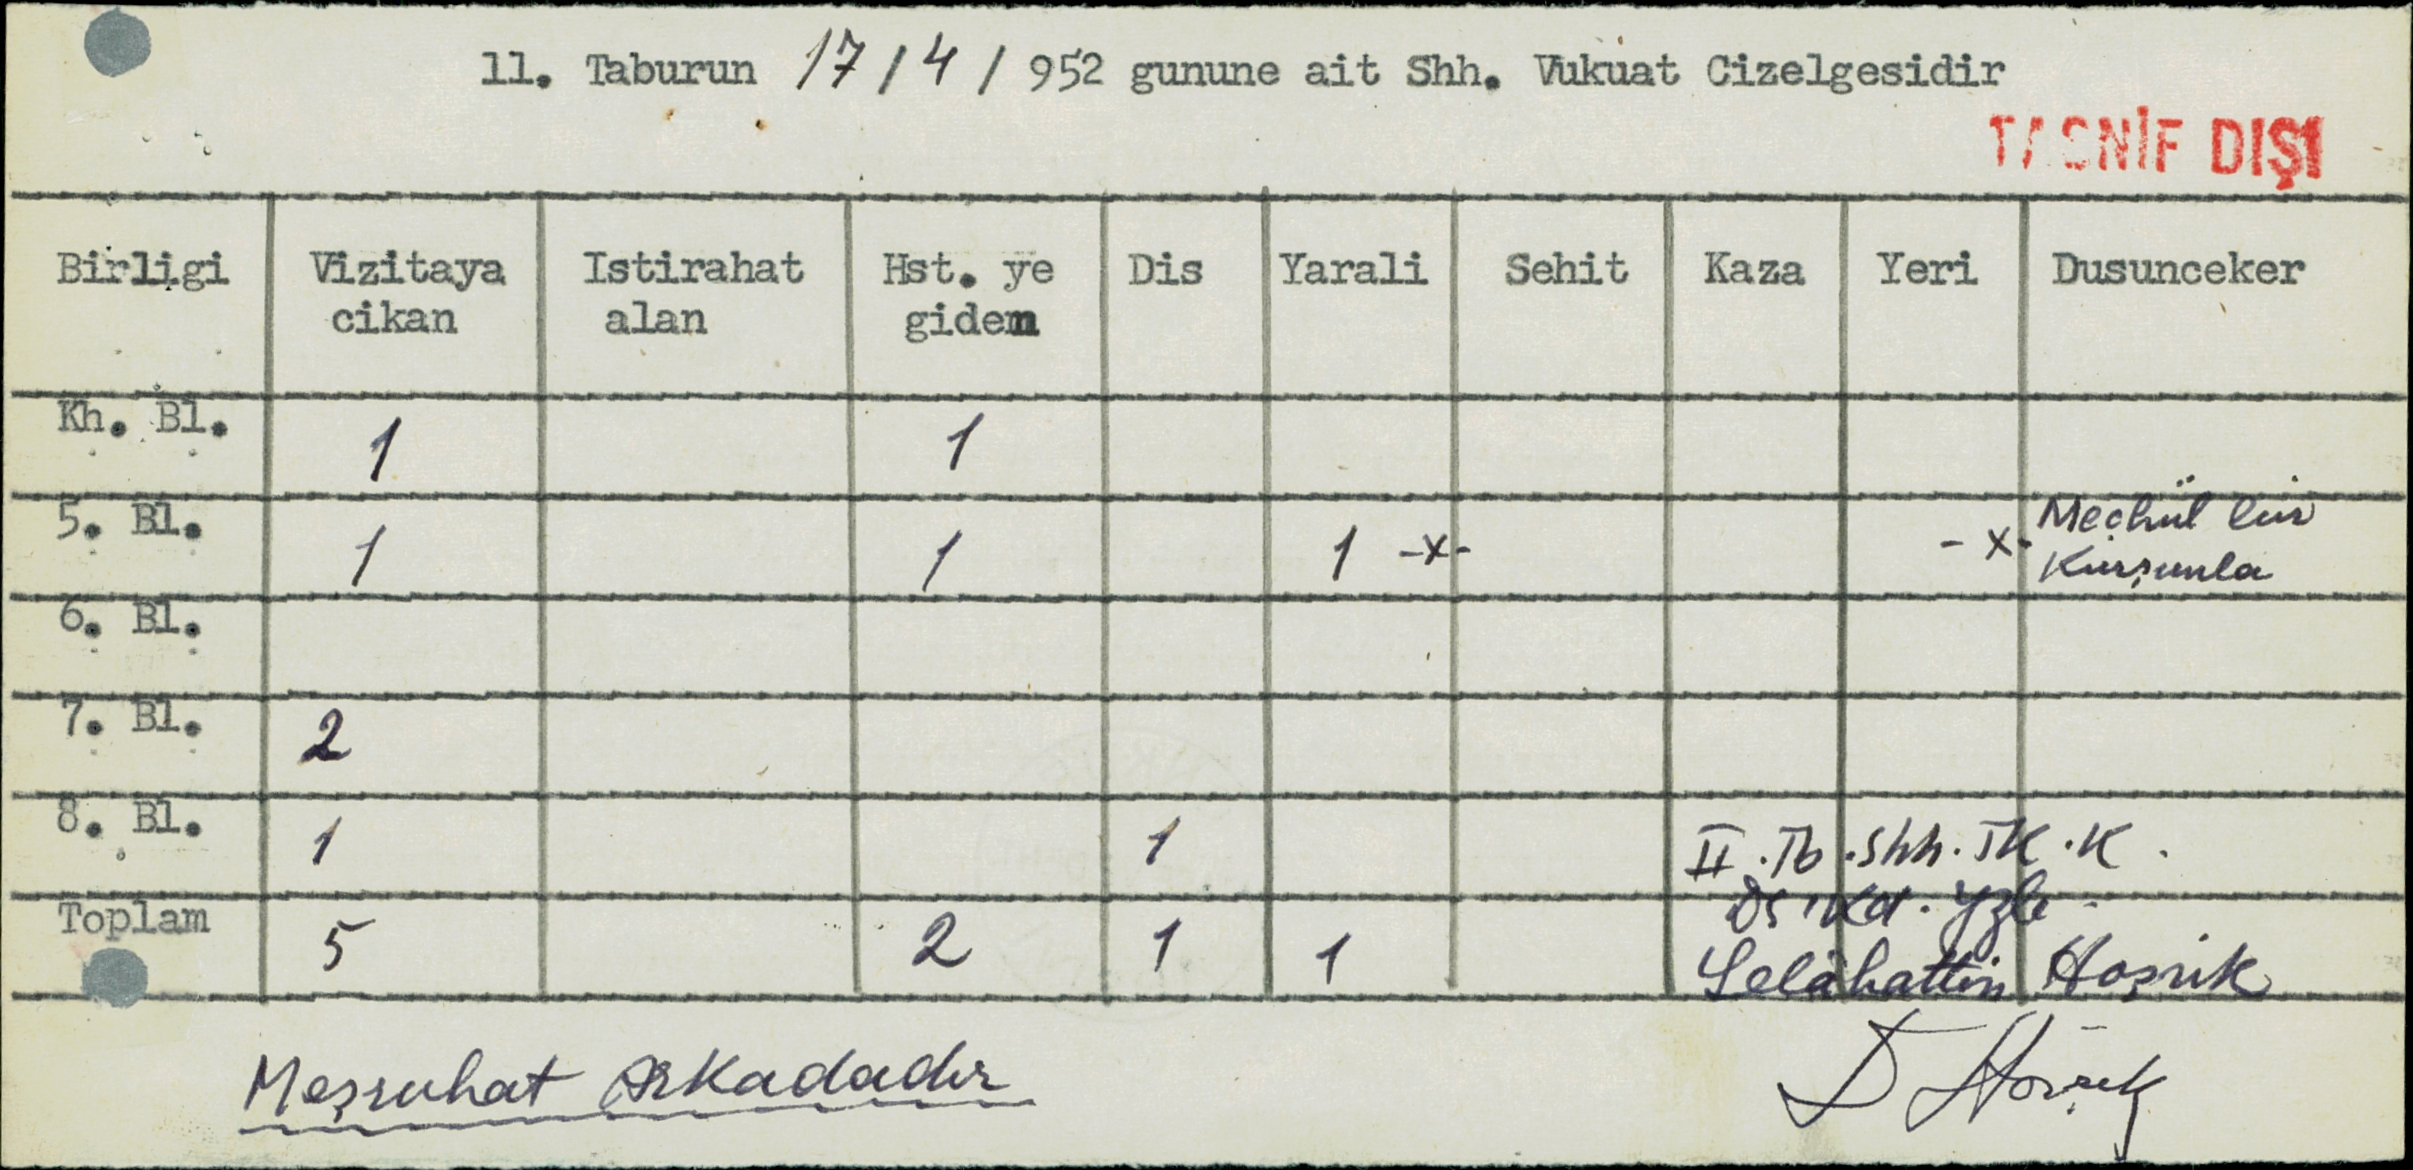 11. Taburun 17 / 4 / 952 gunune ait Shh. Vukuat Cizelgesidir
TASNİF DIŞI
Birligi Vizitaya cikan Istirahat alan Hst. ye giden Dis Yarali Sehit Kaza Yeri Dusunceker
Kh. Bl. 1 1
5. Bl. 1 1 1 -x- -x- Meçhûl bir
Kurşunla
6. Bl.
7. Bl. 2
8. Bl. 1 1
II. Tb. Shh. TK. K.
Toplam 5 2 1 1
Selâhattin
Meşruhat Arkadadır